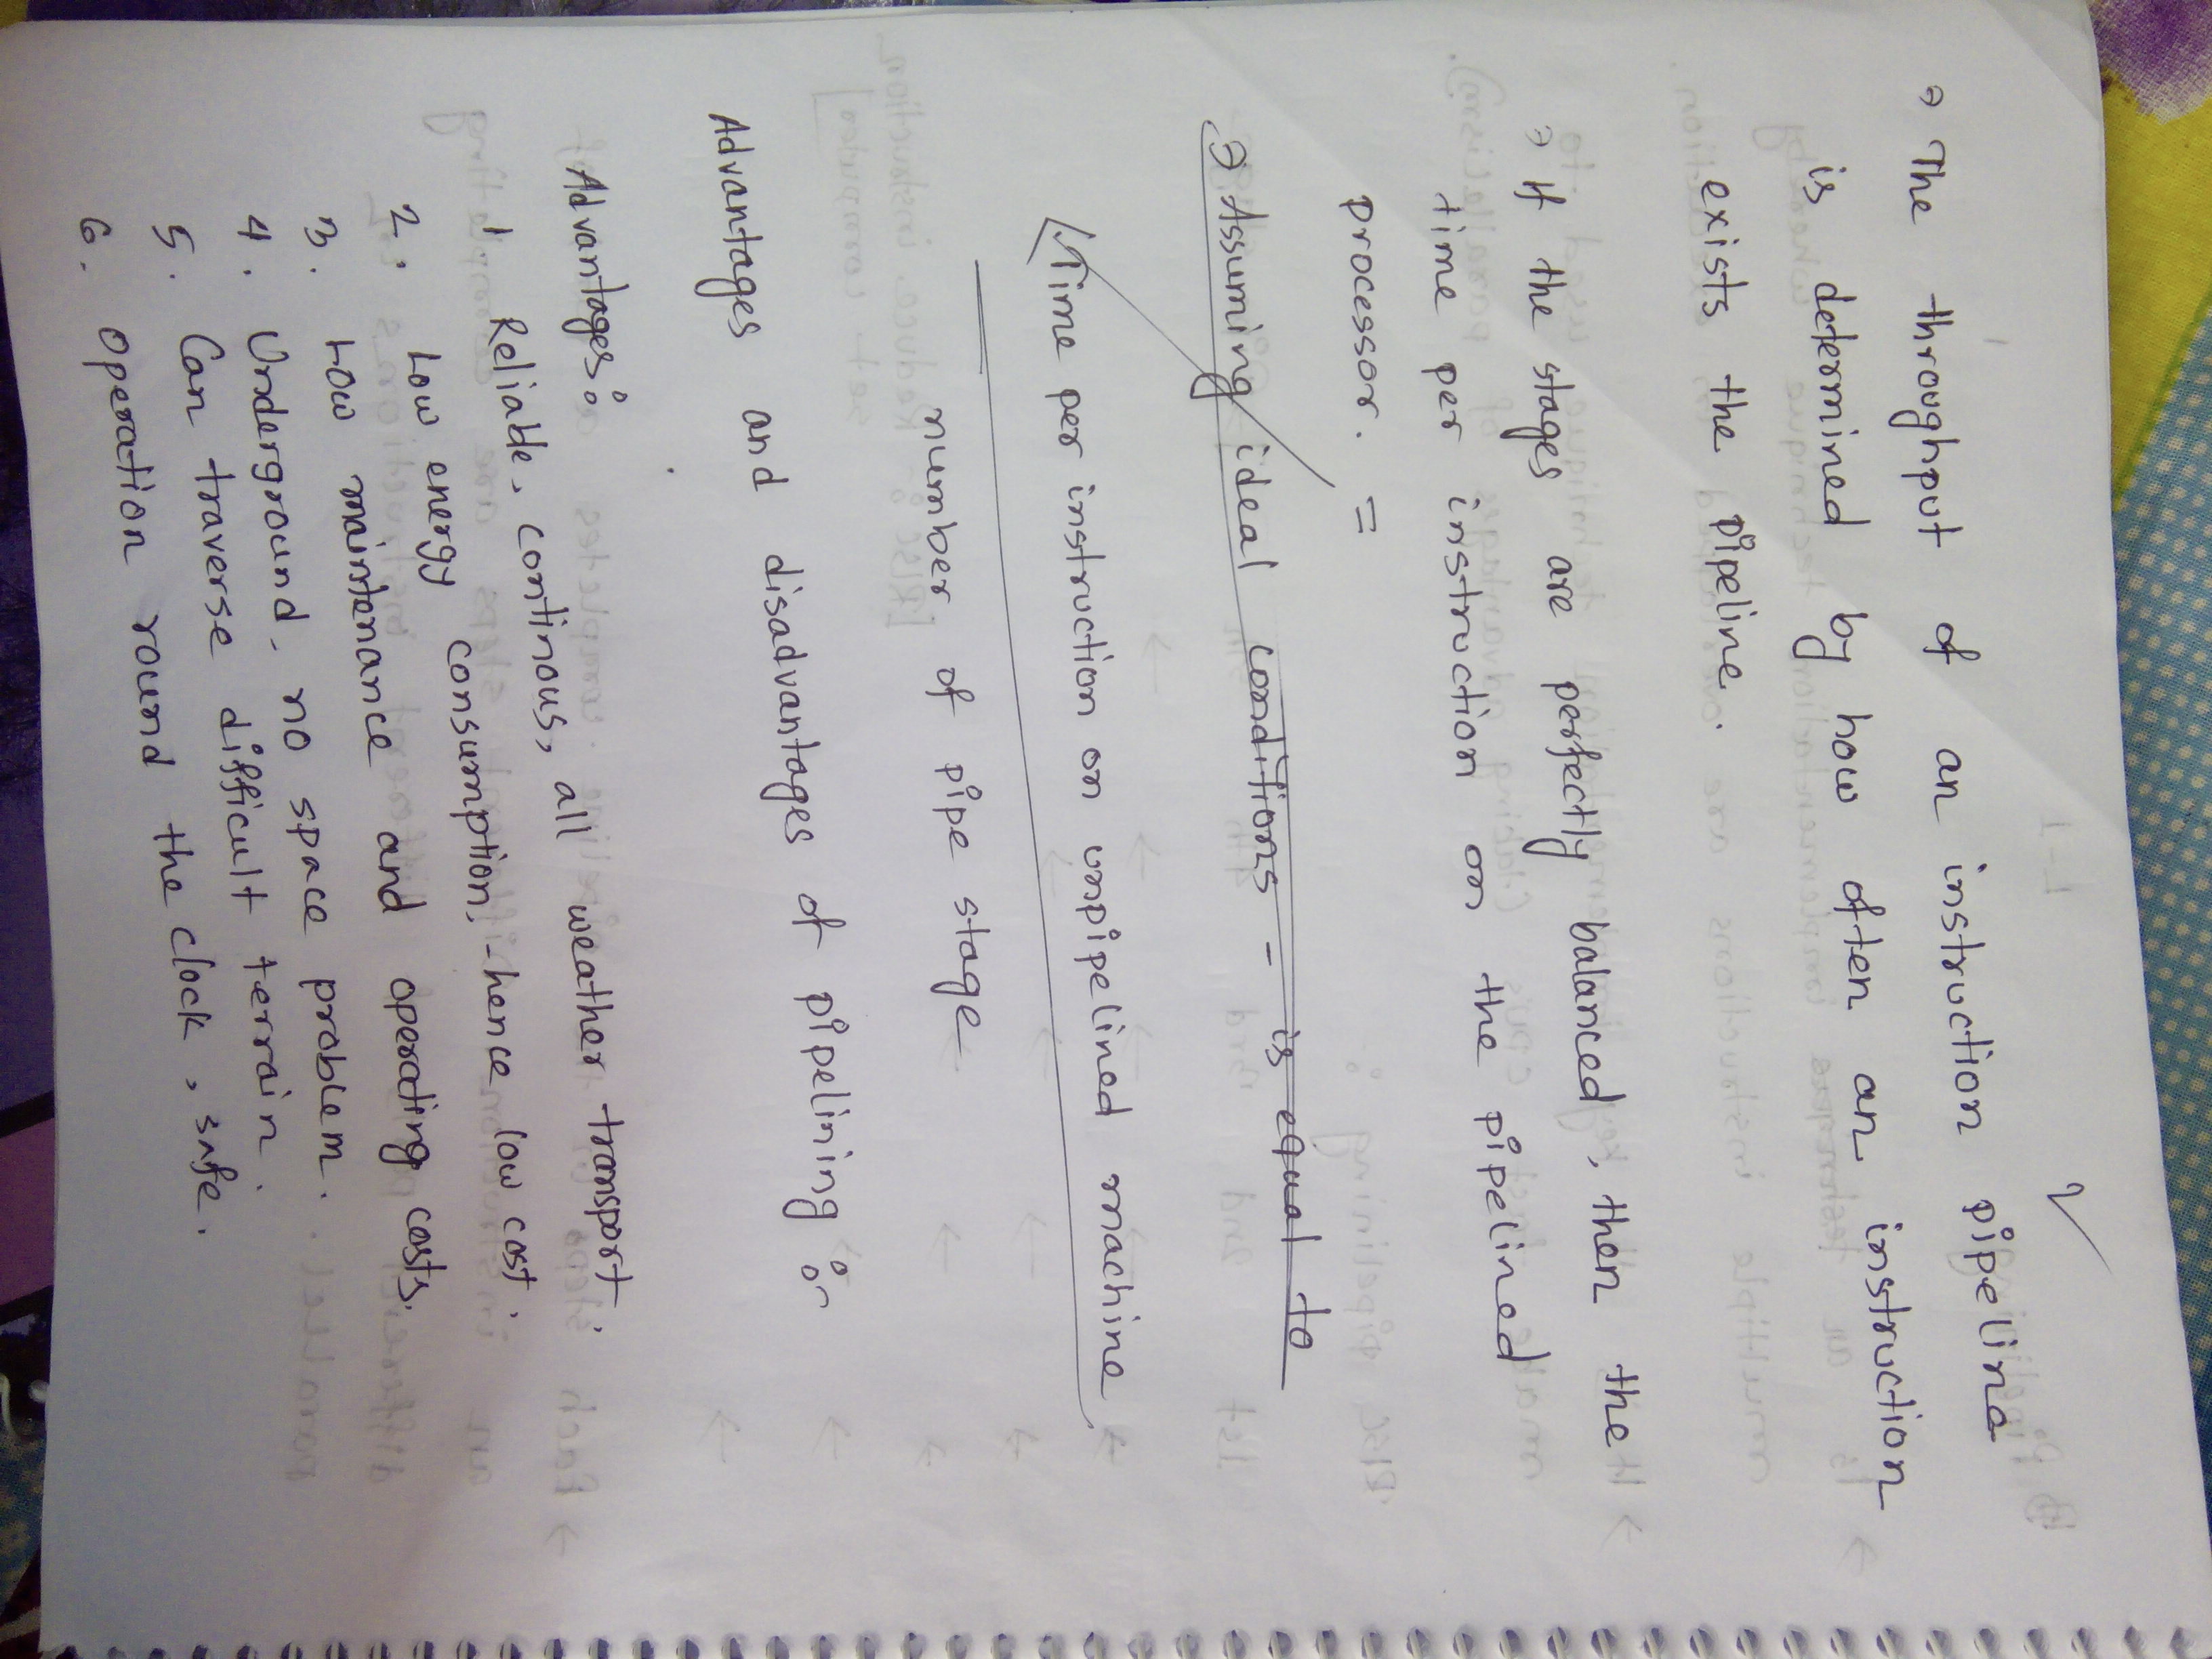 → The throughput of an instruction pipeline
is determined by how often an instruction
exists the pipeline.
→ If the stages are perfectly balanced, then the
time per instruction on the pipelined
processor. =
→ Assuming ideal conditions - is equal to
Time per instruction on unpipelined machine
number of pipe stage
Advantages and disadvantages of pipelining :-
Advantages:
1. Reliable, continous, all weather transport.
2. Low energy consumption, hence low cost.
3. Low maintenance and operating costs.
4. Underground, no space problem.
5. Can traverse difficult terrain.
6. Operation round the clock, safe.